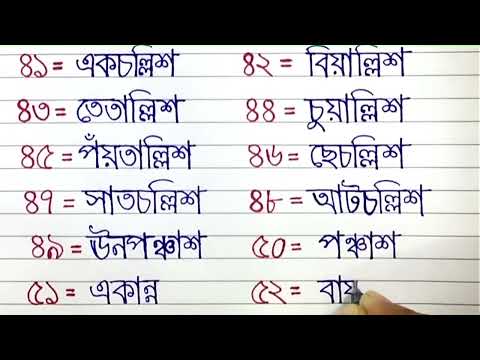 ৪১ = একচল্লিশ ৪২ = বিয়াল্লিশ
৪৩ = তেতাল্লিশ ৪৪ = চুয়াল্লিশ
৪৫ = পঁয়তাল্লিশ ৪৬ = ছেচল্লিশ
৪৭ = সাতচল্লিশ ৪৮ = আটচল্লিশ
৪৯ = ঊনপঞ্চাশ ৫০ = পঞ্চাশ
৫১ = একান্ন ৫২ =